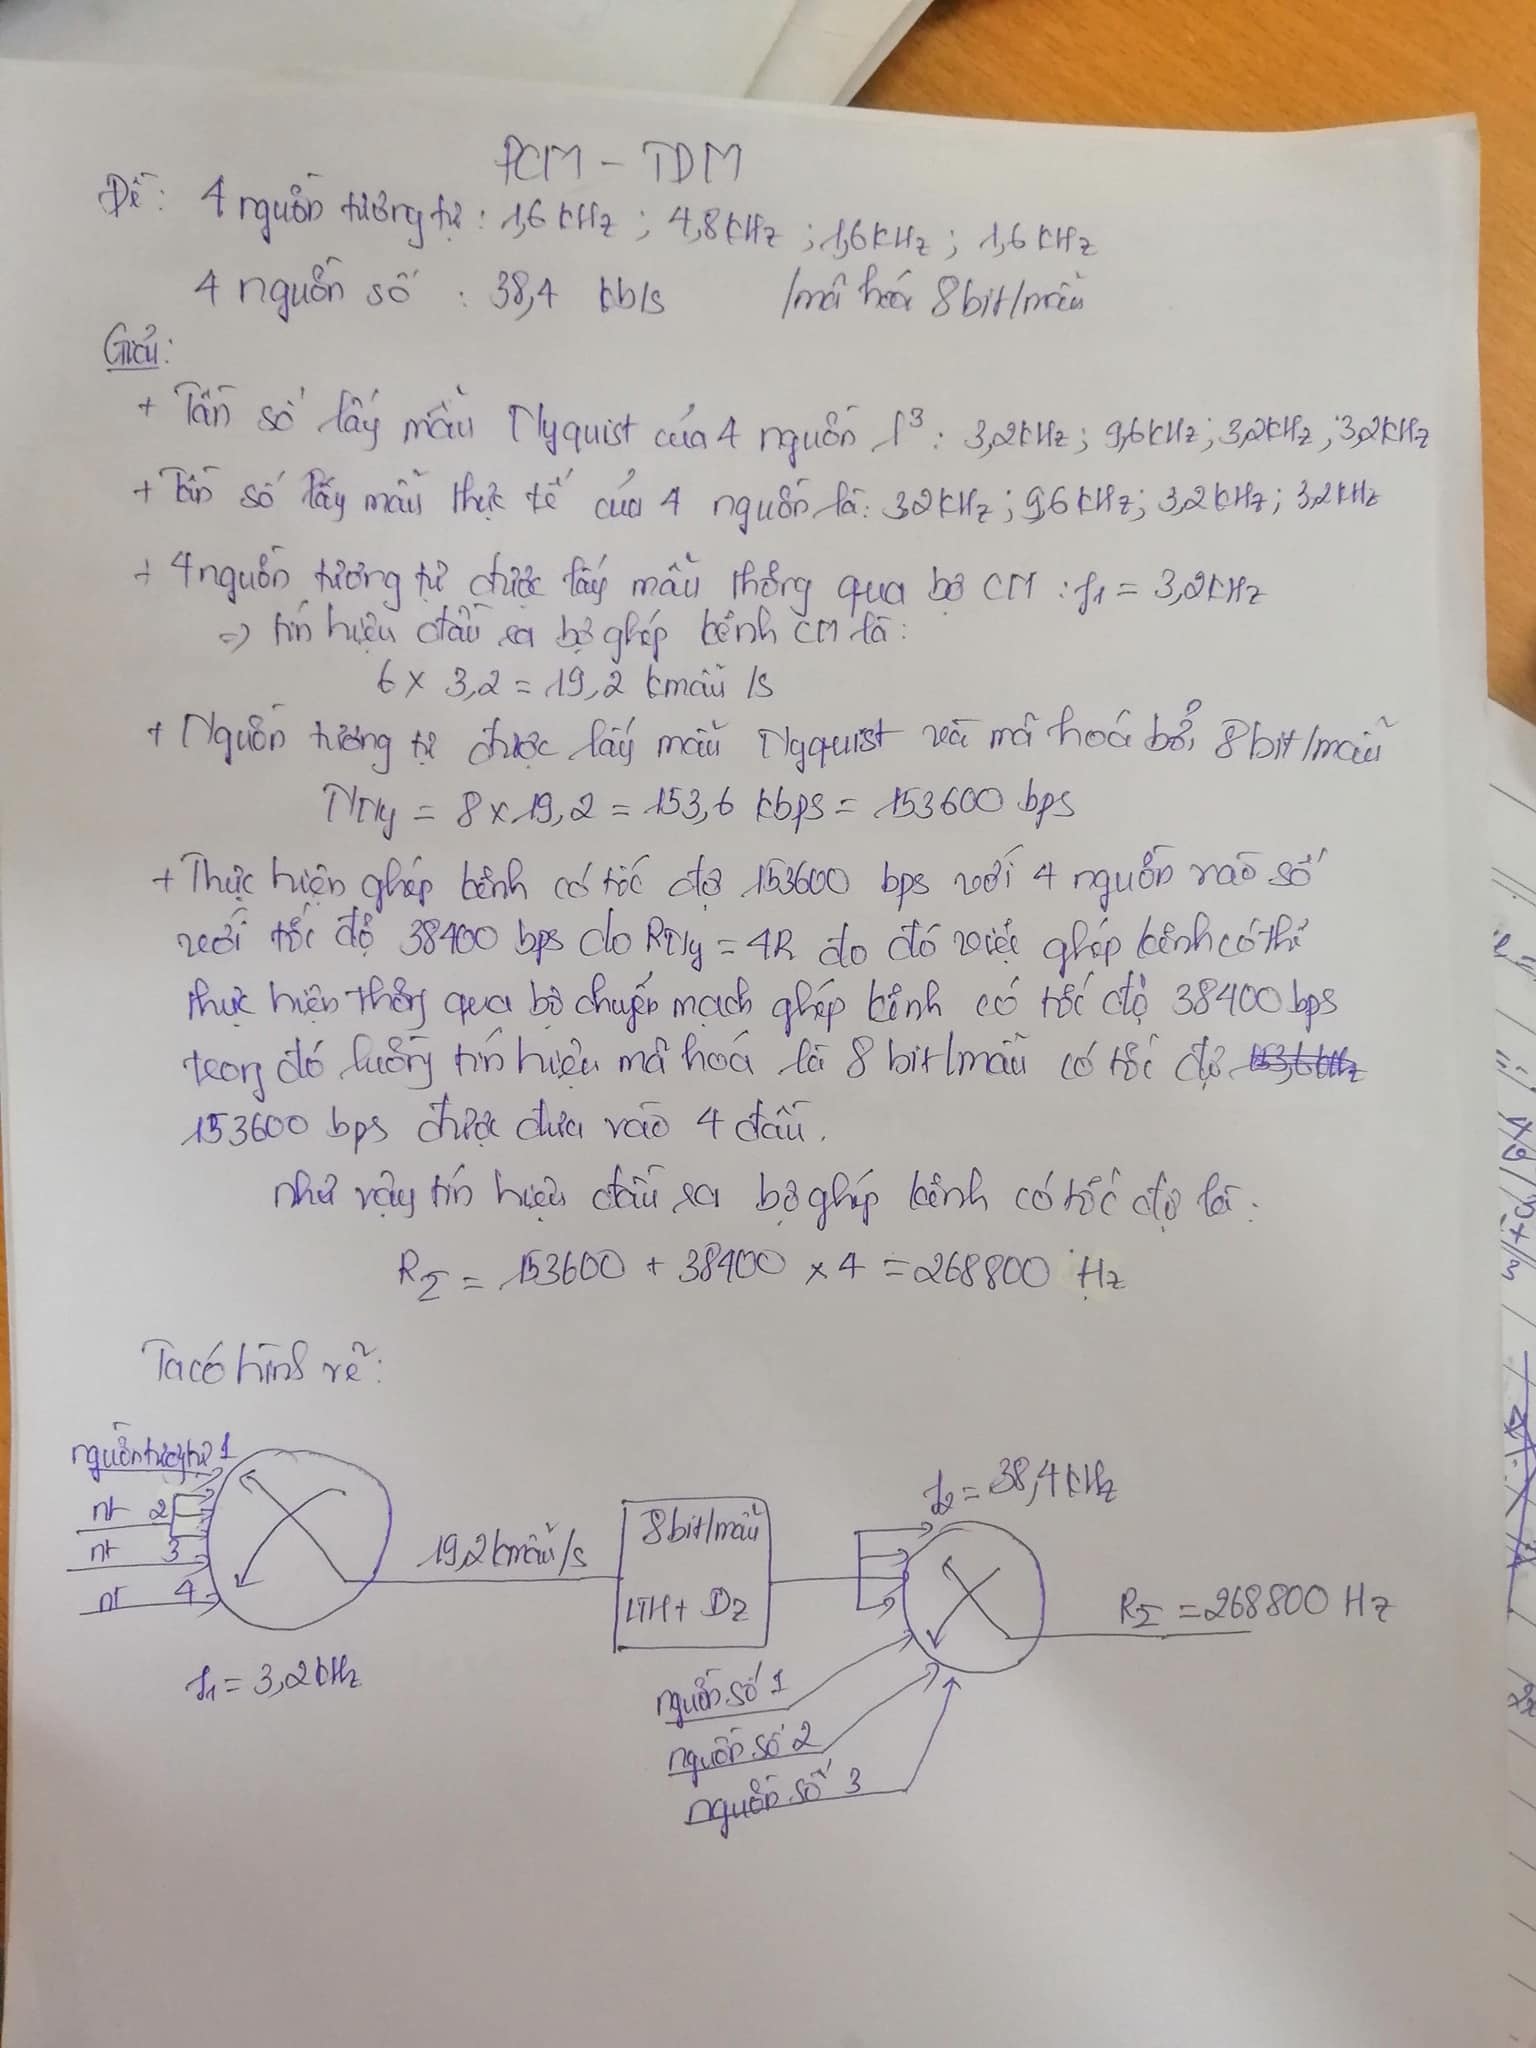 PCM - TDM
Đề: 4 nguồn tương tự: 1,6 kHz; 4,8kHz; 1,6kHz; 1,6kHz
4 nguồn số : 38,4 kb/s /mã hoá 8bit/mẫu
Giải:
+ Tần số lấy mẫu Nyquist của 4 nguồn là: 3,2kHz; 9,6kHz; 3,2kHz; 3,2kHz
+ Tần số lấy mẫu thực tế của 4 nguồn là: 3,2kHz; 9,6kHz; 3,2kHz; 3,2kHz
+ 4 nguồn tương tự được lấy mẫu thông qua bộ CM: f1 = 3,2kHz
=> tín hiệu đầu ra bộ ghép kênh CM là:
6 x 3,2 = 19,2 kmẫu /s
+ Nguồn tương tự được lấy mẫu Nyquist và mã hoá bởi 8bit/mẫu
RNy = 8 x 19,2 = 153,6 kbps = 153600 bps
+ Thực hiện ghép kênh có tốc độ 153600 bps với 4 nguồn vào số
với tốc độ 38400 bps do RNy = 4R do đó việc ghép kênh có thể
thực hiện thông qua bộ chuyển mạch ghép kênh có tốc độ 38400 bps
trong đó luồng tín hiệu mã hoá là 8 bit/mẫu có tốc độ
153600 bps được đưa vào 4 đầu.
như vậy tín hiệu đầu ra bộ ghép kênh có tốc độ là:
RΣ = 153600 + 38400 x 4 = 268800 Hz
Ta có hình vẽ:
nguồn tương tự 1
nt 2
nt 3
nt 4
f1 = 3,2kHz
19,2kmẫu/s
8bit/mẫu
LTH+ Dz
f2 = 38,4kHz
RΣ = 268800 Hz
nguồn số 1
nguồn số 2
nguồn số 3